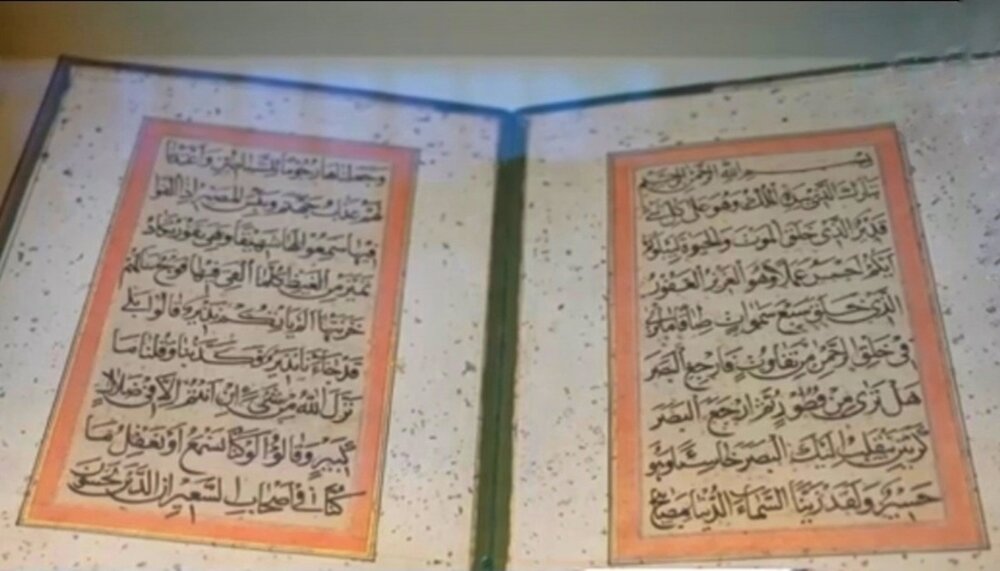 بسم الله الرحمن الرحيم
تبارك الذي بيده الملك وهو على كل شيء
قدير الذي خلق الموت والحيوة ليبلوكم
ايكم احسن عملا وهو العزيز الغفور
الذي خلق سبع سموات طباقا ما ترى
في خلق الرحمن من تفاوت فارجع البصر
هل ترى من فطور ثم ارجع البصر
كرتين ينقلب اليك البصر خاسئا وهو
حسير ولقد زينا السماء الدنيا بمصابيح
وجعلناها رجوما للشياطين واعتدنا
لهم عذاب جهنم وبئس المصير اذا القوا
فيها سمعوا لها شهيقا وهي تفور تكاد
تميز من الغيظ كلما القي فيها فوج سالهم
خزنتها الم ياتكم نذير قالوا بلى
قد جاءنا نذير فكذبنا وقلنا ما
نزل الله من شيء ان انتم الا في ضلال
كبير وقالوا لو كنا نسمع او نعقل ما
كنا في اصحاب السعير ان الذين يخشون